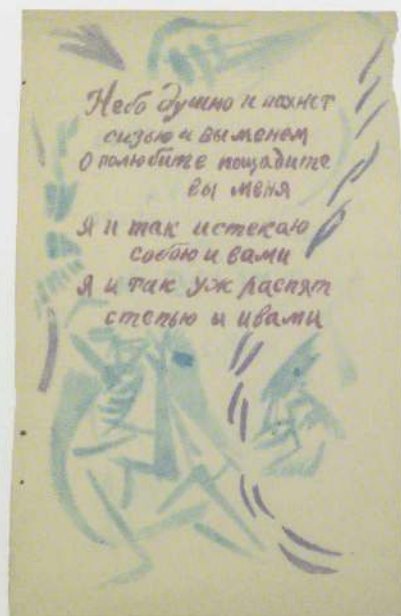 Небо душно и пахнет
сизью и выменем
О полюбите пощадите
вы меня
Я и так истекаю
собою и вами
Я и так уж распят
степью и ивами